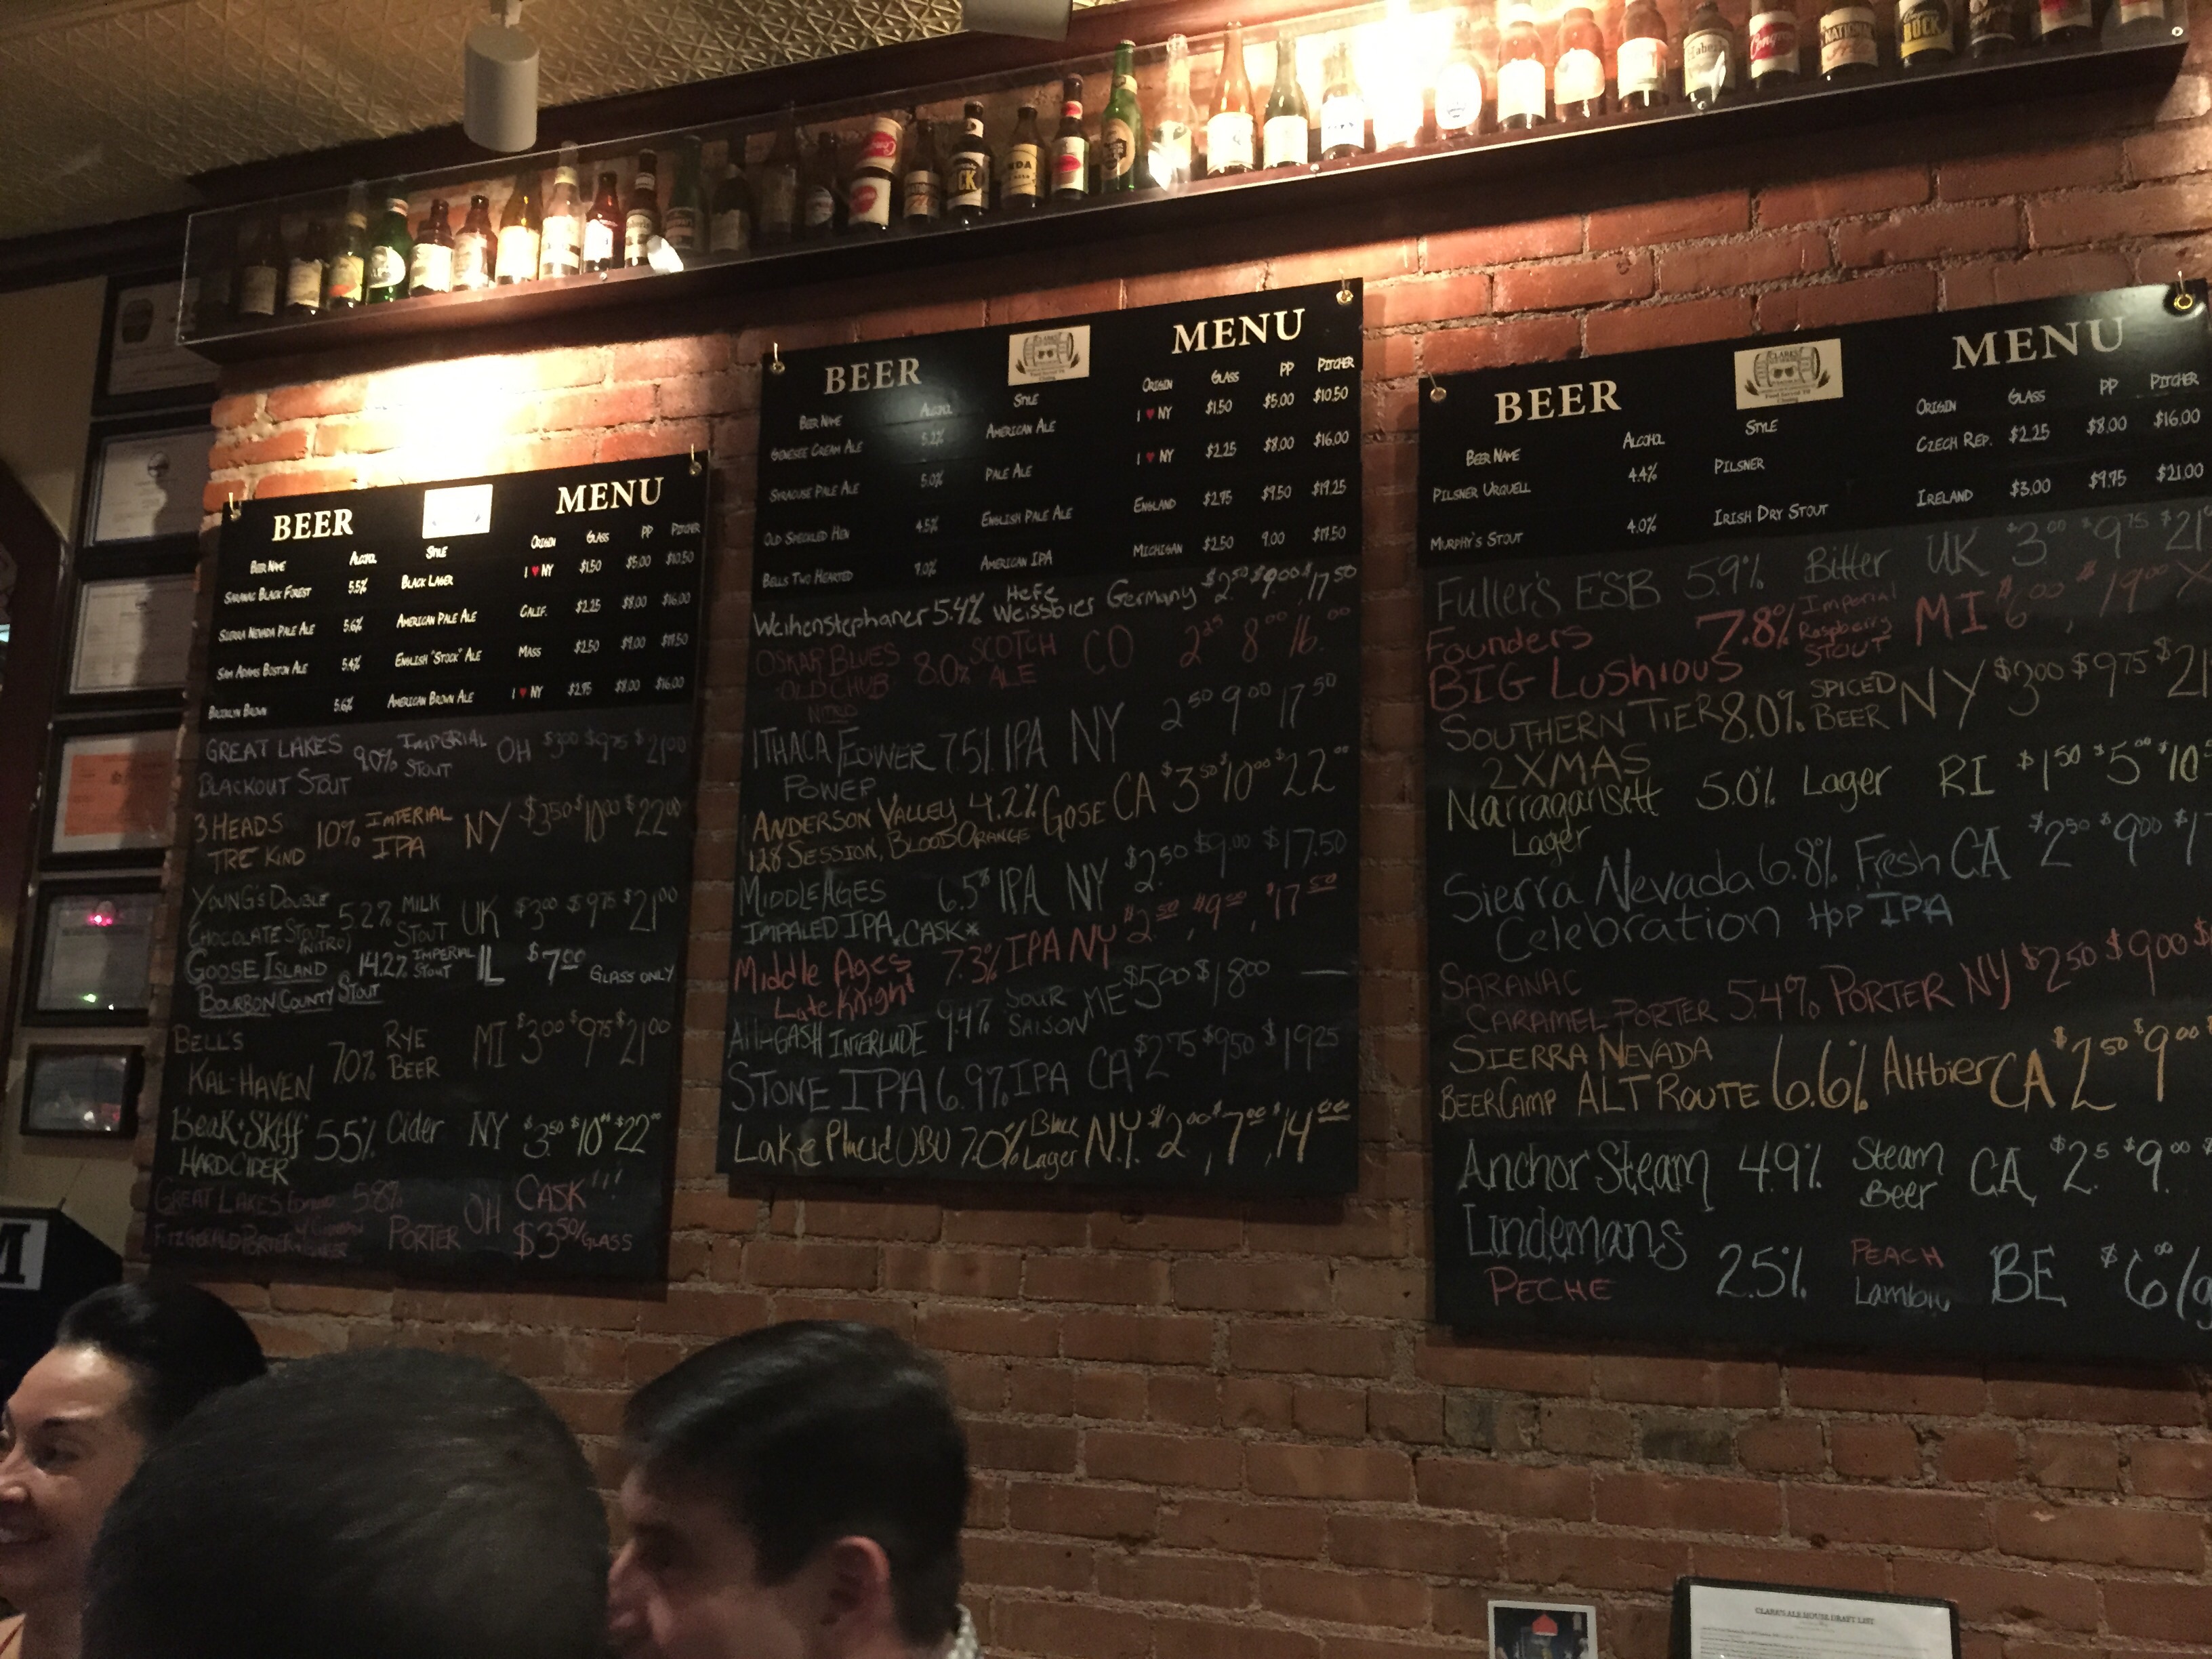 BEER MENU
BEER NAME ALCOHOL STYLE ORIGIN GLASS PP PITCHER
SARANAC BLACK FOREST 5.5% BLACK LAGER I ♥ NY $1.50 $5.00 $10.50
SIERRA NEVADA PALE ALE 5.6% AMERICAN PALE ALE CALIF. $2.25 $8.00 $16.00
SAM ADAMS BOSTON ALE 5.4% ENGLISH "STOCK" ALE MASS $2.50 $9.00 $17.50
BROOKLYN BROWN 5.6% AMERICAN BROWN ALE I ♥ NY $2.75 $8.00 $16.00
GREAT LAKES 9.0% IMPERIAL STOUT OH $3.00 $9.75 $21.00
BLACKOUT STOUT
3 HEADS 10% IMPERIAL IPA NY $3.50 $10.00 $22.00
TRE KIND
YOUNG'S DOUBLE 5.2% MILK STOUT UK $3.00 $9.75 $21.00
CHOCOLATE STOUT (NITRO)
GOOSE ISLAND 14.2% IMPERIAL STOUT IL $7.00 GLASS ONLY
BOURBON COUNTY STOUT
BELL'S 7.0% RYE BEER MI $3.00 $9.75 $21.00
KAL-HAVEN
Beak & Skiff 5.5% Cider NY $3.50 $10.00 $22.00
HARD CIDER
GREAT LAKES 5.8% PORTER OH CASK!!!
FITZGERALD PORTER $3.50/GLASS
BEER MENU
BEER NAME ALCOHOL STYLE ORIGIN GLASS PP PITCHER
GENESEE CREAM ALE 5.2% AMERICAN ALE I ♥ NY $1.50 $5.00 $10.50
SYRACUSE PALE ALE 5.0% PALE ALE I ♥ NY $2.25 $8.00 $16.00
OLD SPECKLED HEN 4.5% ENGLISH PALE ALE ENGLAND $2.75 $9.50 $19.25
BELLS TWO HEARTED 7.0% AMERICAN IPA MICHIGAN $2.50 9.00 $17.50
Weihenstephaner 5.4% HeFe Weissbier Germany $2.50 $9.00 $17.50
OSKAR BLUES 8.0% SCOTCH ALE CO 2.25 8.00 16.00
OLD CHUB
NITRO
ITHACA FLOWER 7.5% IPA NY 2.50 9.00 17.50
POWER
ANDERSON VALLEY 4.2% GOSE CA $3.50 $10.00 $22.00
128 SESSION, BLOOD ORANGE
MIDDLE AGES 6.5% IPA NY $2.50 $9.00 $17.50
IMPALED IPA *CASK*
Middle Ages 7.3% IPA NY $2.50, $9.00, $17.50
Late Knight
AllAGASH INTERLUDE 9.4% SOUR SAISON ME $5.00 $18.00 —
STONE IPA 6.9% IPA CA $2.75 $9.50 $19.25
Lake Placid UBU 7.0% Black Lager N.Y. $2.00, $7.00, $14.00
BEER MENU
BEER NAME ALCOHOL STYLE ORIGIN GLASS PP PITCHER
PILSNER URQUELL 4.4% PILSNER CZECH REP. $2.25 $8.00 $16.00
MURPHY'S STOUT 4.0% IRISH DRY STOUT IRELAND $3.00 $9.75 $21.00
Fuller's ESB 5.9% Bitter UK $3.00 $9.75 $21
Founders 7.8% Imperial Raspberry STOUT MI $6.00, $19.00 X
BIG LUSHIOUS
SOUTHERN TIER 8.0% SPICED BEER NY $3.00 $9.75 $21
2XMAS
Narragansett 5.0% Lager RI $1.50 $5.00 $10
Lager
Sierra Nevada 6.8% Fresh Hop IPA CA $2.50 $9.00 $1
Celebration
SARANAC
CARAMEL PORTER 5.4% PORTER NY $2.50 $9.00 $
SIERRA NEVADA
BEER CAMP ALT ROUTE 6.6% Altbier CA $2.50 $9.00
Anchor Steam 4.9% Steam Beer CA $2.5 $9.00
Lindemans
PECHE 2.5% PEACH Lambic BE $6.00/g
CLARK'S ALE HOUSE DRAFT LIST